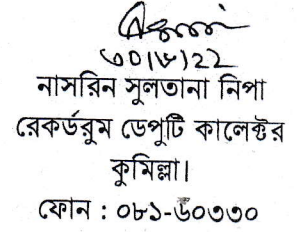 ৩০/৮/22
নাসরিন সুলতানা নিপা
রেকর্ডরুম ডেপুটি কালেক্টর
কুমিল্লা।
ফোন : ০৮১-৬০৩৩০